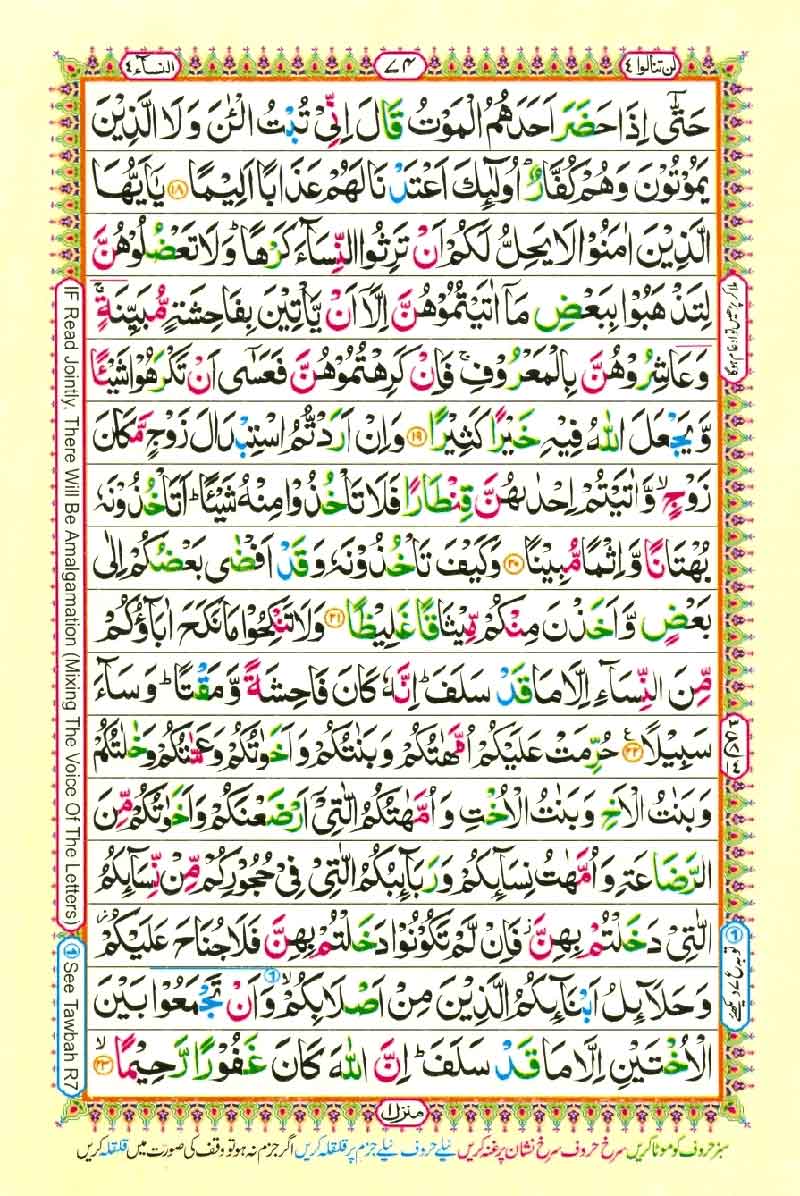 النسآء ٤
٧٤
لن تنالوا ٤
حَتّٰۤى اِذَا حَضَرَ اَحَدَهُمُ الْمَوْتُ قَالَ اِنِّیْ تُبْتُ الْـٰٔنَ وَلَا الَّذِیْنَ
یَمُوْتُوْنَ وَهُمْ كُفَّارٌ ؕ اُولٰٓىِٕكَ اَعْتَدْنَا لَهُمْ عَذَابًا اَلِیْمًا ۝۱۸ یٰۤاَیُّهَا
الَّذِیْنَ اٰمَنُوْا لَا یَحِلُّ لَكُمْ اَنْ تَرِثُوا النِّسَآءَ كَرْهًا ؕ وَلَا تَعْضُلُوْهُنَّ
لِتَذْهَبُوْا بِبَعْضِ مَاۤ اٰتَیْتُمُوْهُنَّ اِلَّاۤ اَنْ یَّاْتِیْنَ بِفَاحِشَةٍ مُّبَیِّنَةٍ ۚ
وَعَاشِرُوْهُنَّ بِالْمَعْرُوْفِ ۚ فَاِنْ كَرِهْتُمُوْهُنَّ فَعَسٰۤى اَنْ تَكْرَهُوْا شَیْـًٔا
وَّیَجْعَلَ اللّٰهُ فِیْهِ خَیْرًا كَثِیْرًا ۝۱۹ وَاِنْ اَرَدْتُّمُ اسْتِبْدَالَ زَوْجٍ مَّكَانَ
زَوْجٍ ۙ وَّاٰتَیْتُمْ اِحْدٰىهُنَّ قِنْطَارًا فَلَا تَاْخُذُوْا مِنْهُ شَیْـًٔا ؕ اَتَاْخُذُوْنَهٗ
بُهْتَانًا وَّاِثْمًا مُّبِیْنًا ۝۲۰ وَكَیْفَ تَاْخُذُوْنَهٗ وَقَدْ اَفْضٰى بَعْضُكُمْ اِلٰى
بَعْضٍ وَّاَخَذْنَ مِنْكُمْ مِّیْثَاقًا غَلِیْظًا ۝۲۱ وَلَا تَنْكِحُوْا مَا نَكَحَ اٰبَآؤُكُمْ
مِّنَ النِّسَآءِ اِلَّا مَا قَدْ سَلَفَ ؕ اِنَّهٗ كَانَ فَاحِشَةً وَّمَقْتًا ؕ وَسَآءَ
سَبِیْلًا ۝۲۲ حُرِّمَتْ عَلَیْكُمْ اُمَّهٰتُكُمْ وَبَنٰتُكُمْ وَاَخَوٰتُكُمْ وَعَمّٰتُكُمْ وَخٰلٰتُكُمْ
وَبَنٰتُ الْاَخِ وَبَنٰتُ الْاُخْتِ وَاُمَّهٰتُكُمُ الّٰتِیْۤ اَرْضَعْنَكُمْ وَاَخَوٰتُكُمْ مِّنَ
الرَّضَاعَةِ وَاُمَّهٰتُ نِسَآىِٕكُمْ وَرَبَآىِٕبُكُمُ الّٰتِیْ فِیْ حُجُوْرِكُمْ مِّنْ نِّسَآىِٕكُمُ
الّٰتِیْ دَخَلْتُمْ بِهِنَّ ؗ فَاِنْ لَّمْ تَكُوْنُوْا دَخَلْتُمْ بِهِنَّ فَلَا جُنَاحَ عَلَیْكُمْ ؗ
وَحَلَآىِٕلُ اَبْنَآىِٕكُمُ الَّذِیْنَ مِنْ اَصْلَابِكُمْ ۙ وَاَنْ تَجْمَعُوْا بَیْنَ
الْاُخْتَیْنِ اِلَّا مَا قَدْ سَلَفَ ؕ اِنَّ اللّٰهَ كَانَ غَفُوْرًا رَّحِیْمًا ۝۲۳ ۙ
منزل ۱
سبز حروف کو موٹا کریں سرخ حروف سرخ نشان پر غنہ کریں نیلے حروف نیلے جزم پر قلقلہ کریں اگر جزم نہ ہو تو وقف کی صورت میں قلقلہ کریں
IF Read Jointly. There Will Be Amalgamation (Mixing The Voice Of The Letters)
See Tawbah R7